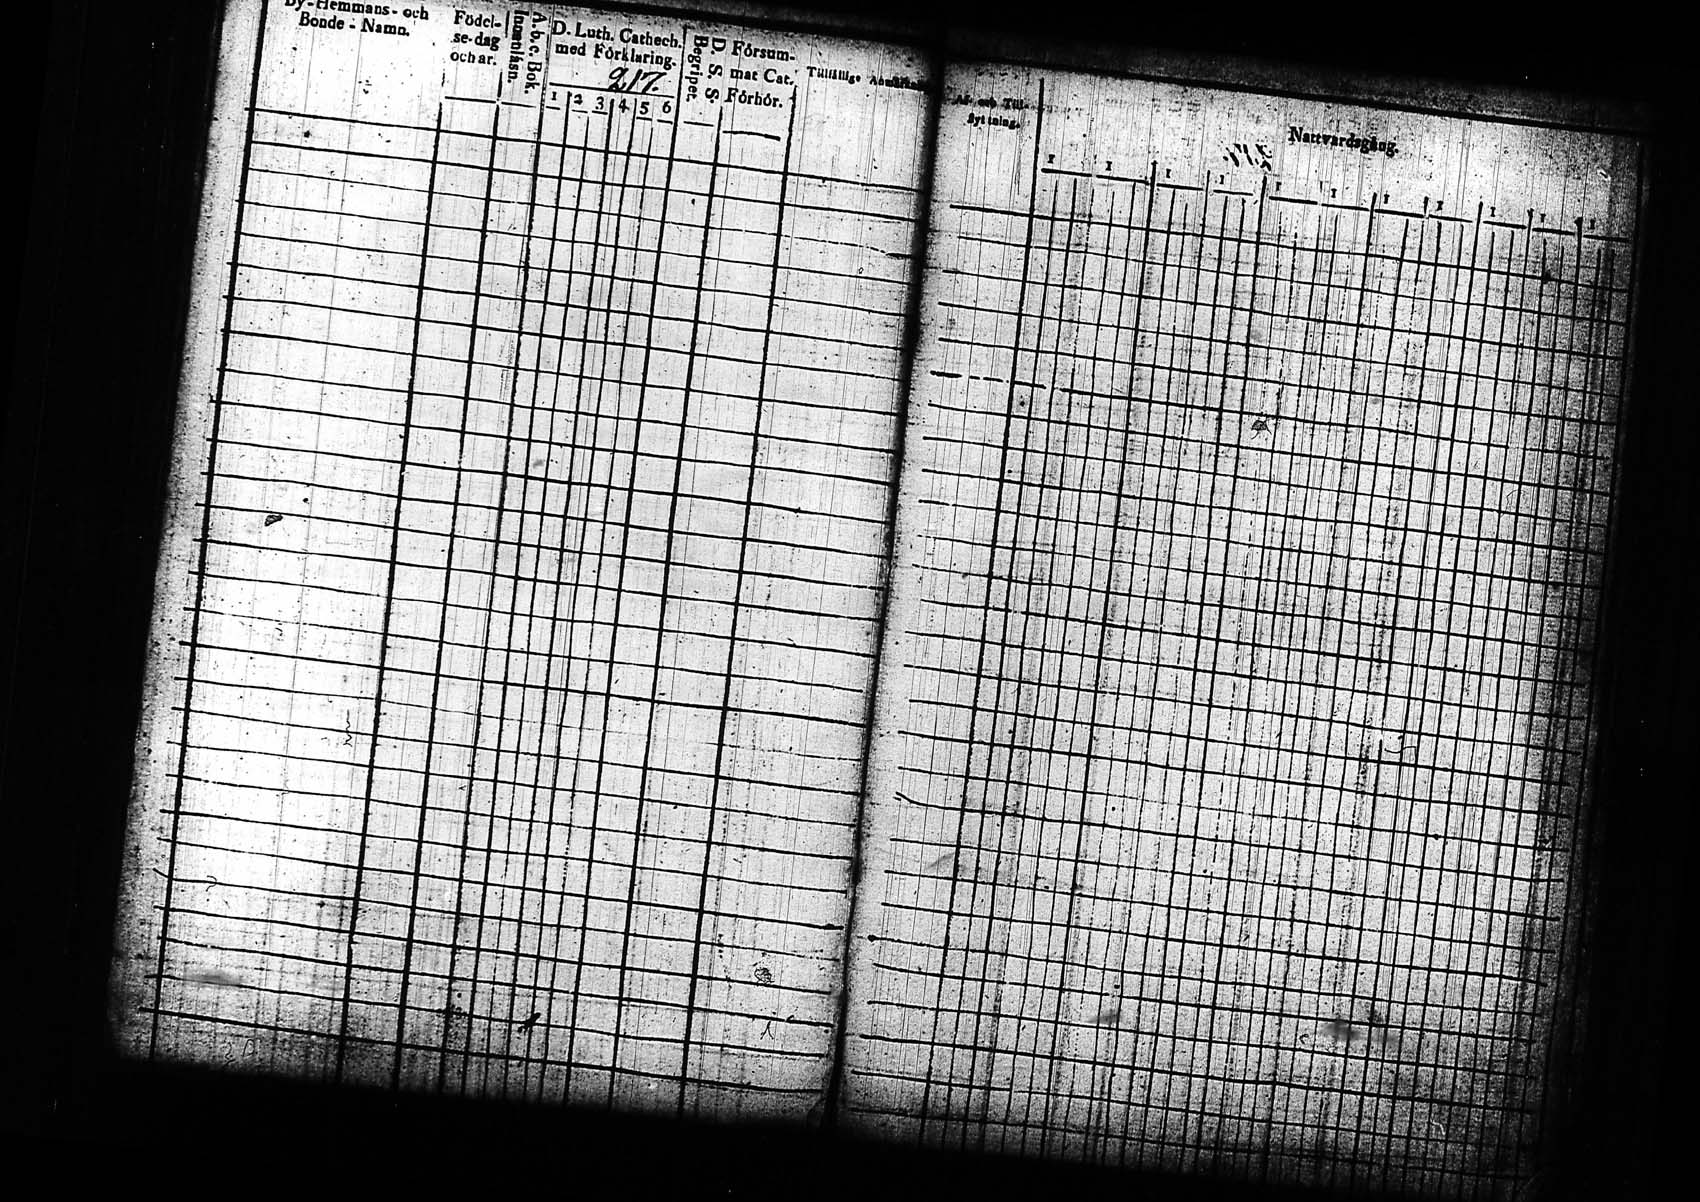 By-Hemmans- och
Bonde-Namn.
Födel-
se-dag
och år.
A.b.c. Bok.
Innanläsn.
D. Luth. Cathech.
med Förklaring.
217.
1 2 3 4 5 6
D. S. S.
Begriper.
Försum-
mat Cat.
Förhör.
Tillfällige Anmärkn
Af- och Till-
flyttning.
Nattvardsgång.
1 1 1 1 1 1 1 1 1 1 1